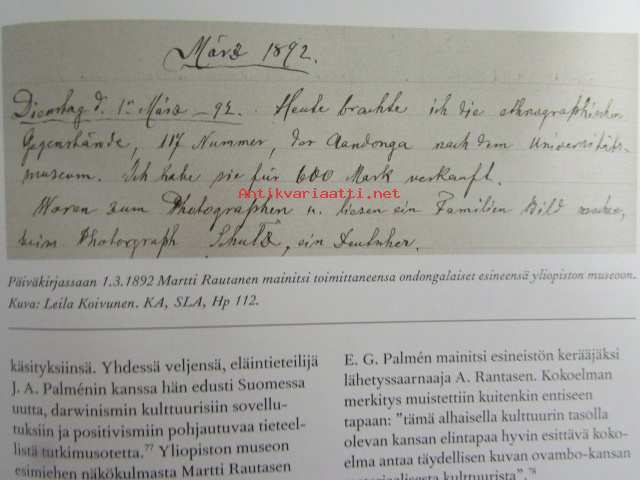 März 1892.
Dienstag d. 1n März – 92. Heute brachte ich die ethnographischen
Gegenstände, 117 Nummer, der Aandonga nach dem Universitäts-
museum. Ich habe sie für 600 Mark verkauft.
Antikvariaatti.net
Waren zum Photographen u. liesen ein Familien Bild
beim Photograph Schulz, ein Deutscher.
Päiväkirjassaan 1.3.1892 Martti Rautanen mainitsi toimittaneensa ondongalaiset esineensä yliopiston museoon.
Kuva: Leila Koivunen. KA, SLA, Hp 112.
käsityksiinsä. Yhdessä veljensä, eläintieteilijä
J. A. Palménin kanssa hän edusti Suomessa
uutta, darwinismin kulttuurisiin sovellu-
tuksiin ja positivismiin pohjautuvaa tieteel-
listä tutkimusotetta.77 Yliopiston museon
esimiehen näkökulmasta Martti Rautasen
E. G. Palmén mainitsi esineistön kerääjäksi
lähetyssaarnaaja A. Rantasen. Kokoelman
merkitys muistettiin kuitenkin entiseen
tapaan: ”tämä alhaisella kulttuurin tasolla
olevan kansan elintapaa hyvin esittävä koko-
elma antaa täydellisen kuvan ovambo-kansan
materiaalisesta kulttuurista”.78